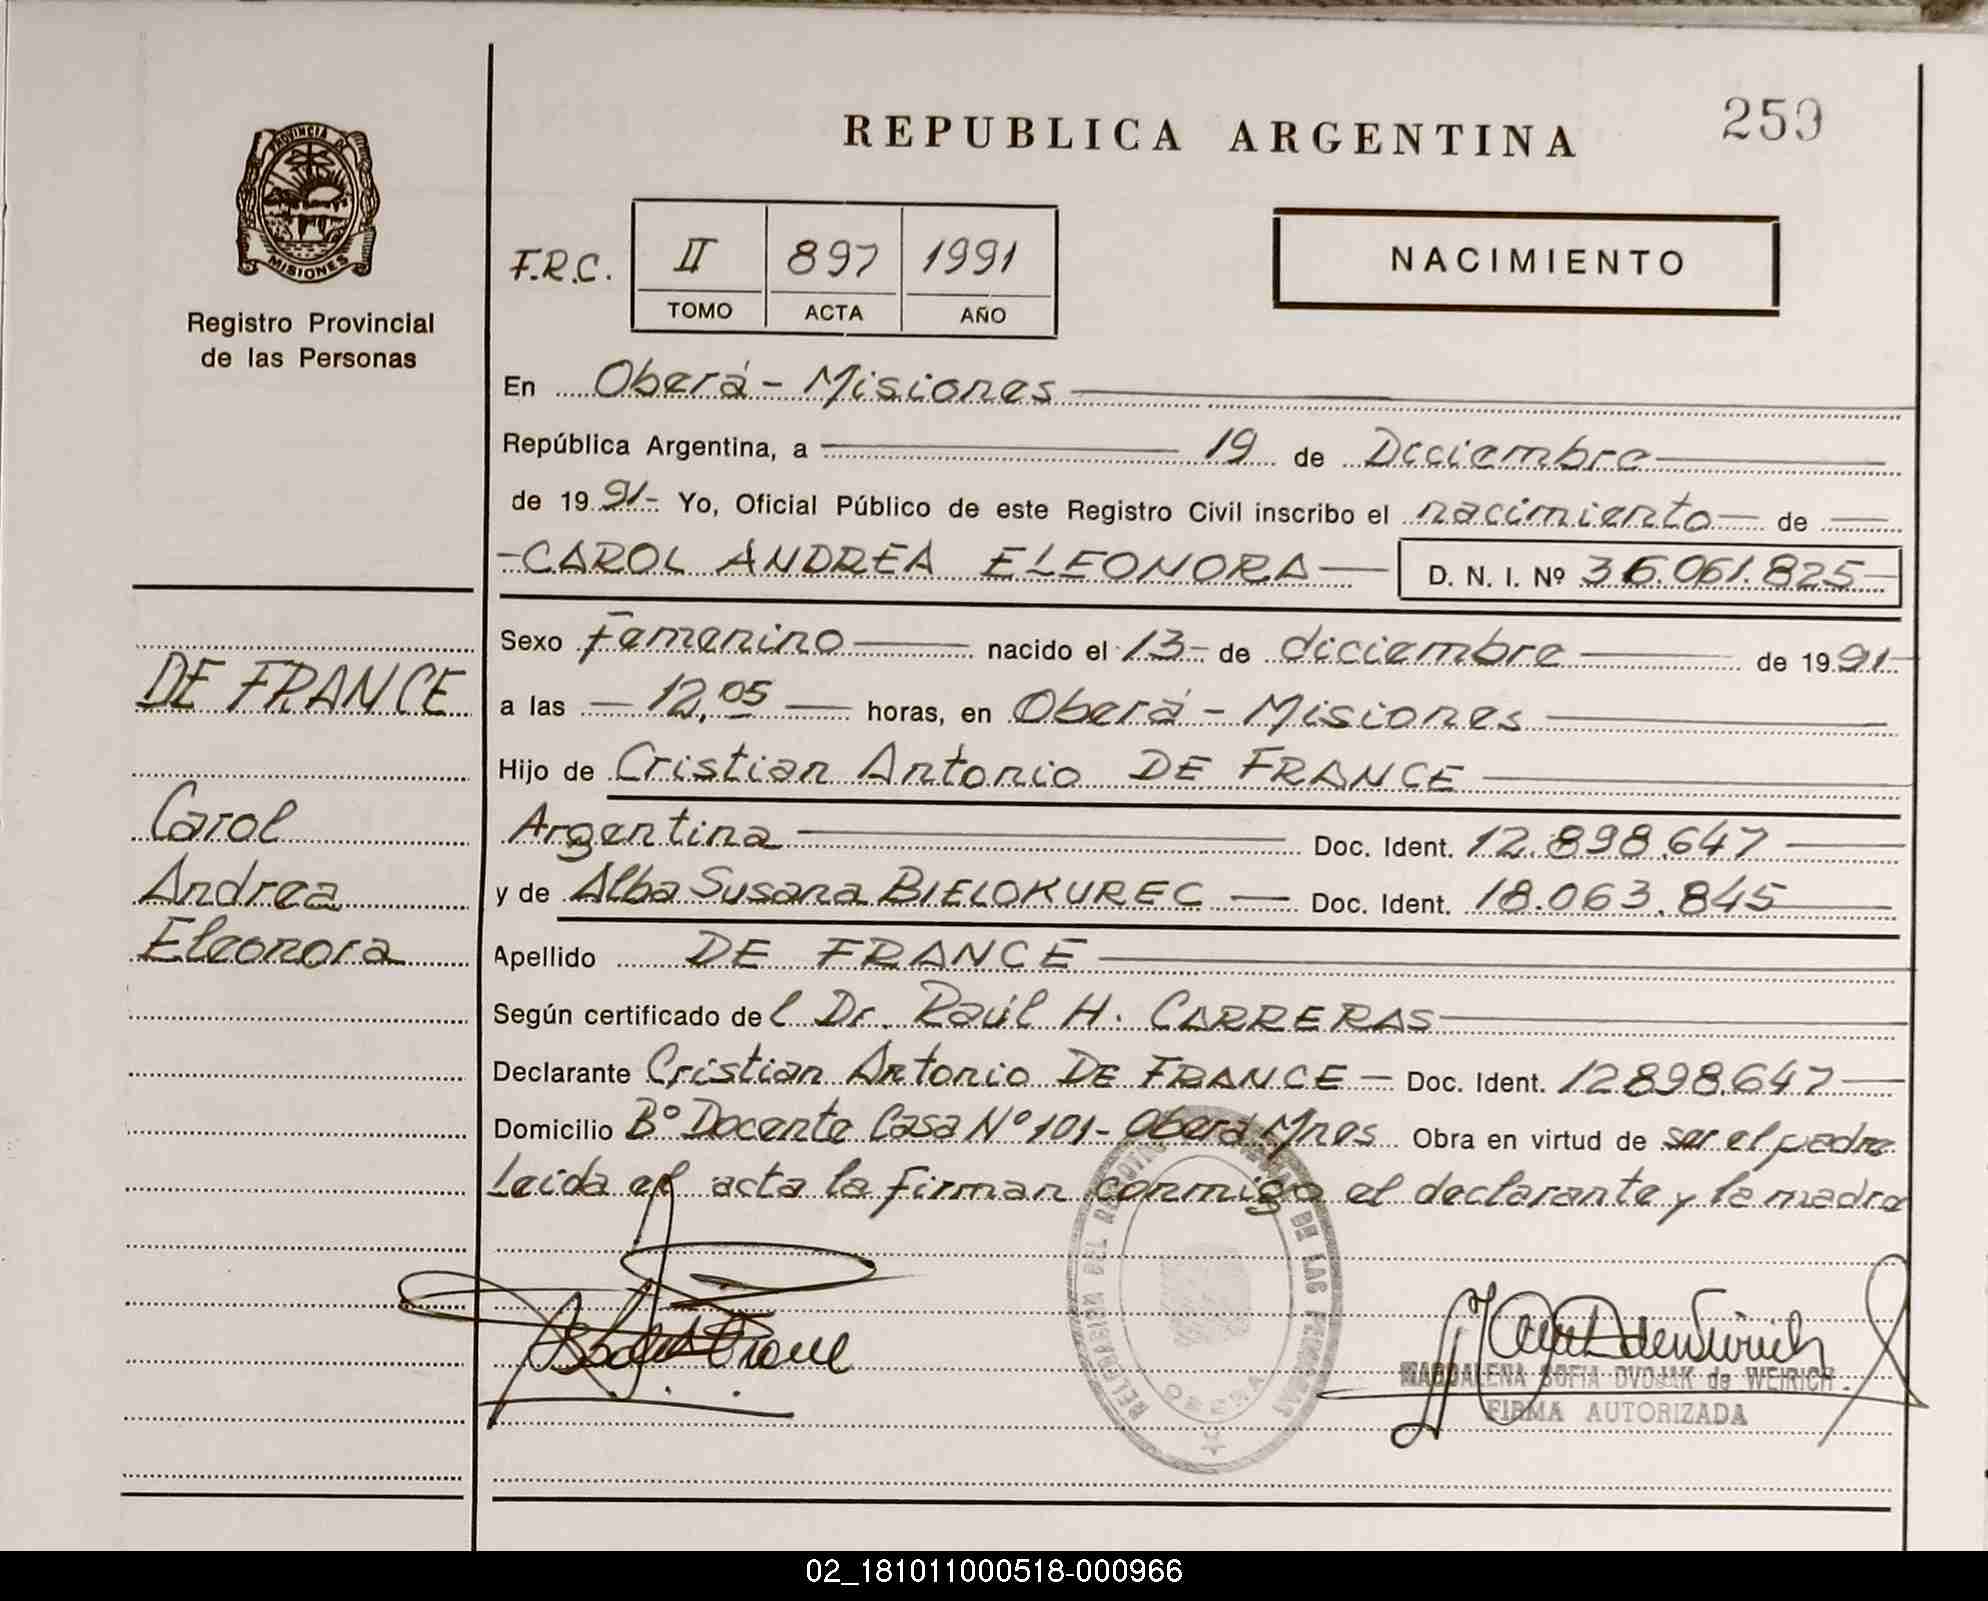 259
REPUBLICA ARGENTINA
PROVINCIA DE
MISIONES
Registro Provincial
de las Personas
F.R.C. II 897 1991
TOMO ACTA AÑO
NACIMIENTO
En Oberá - Misiones
República Argentina, a 19 de Diciembre
de 1991- Yo, Oficial Público de este Registro Civil inscribo el nacimiento de
-CAROL ANDREA ELEONORA- D. N. I. Nº 36.061.825-
Sexo Femenino nacido el 13- de diciembre de 1991-
a las - 12,05 - horas, en Oberá - Misiones
Hijo de Cristian Antonio DE FRANCE
Argentina Doc. Ident. 12.898.647
y de Alba Susana BIELOKUREC - Doc. Ident. 18.063.845
Apellido DE FRANCE
Según certificado del Dr. Raúl H. CARRERAS
Declarante Cristian Antonio DE FRANCE - Doc. Ident. 12898.647
Domicilio Bº Docente Casa Nº 101- Oberá Mnes Obra en virtud de ser el padre
Leida el acta la firman conmigo el declarante y la madre
DE FRANCE
Carol
Andrea
Eleonora
DE LAS PERSONAS
OBERA
MAGDALENA SOFIA DVOJAK de WEIRICH
FIRMA AUTORIZADA
02_181011000518-000966